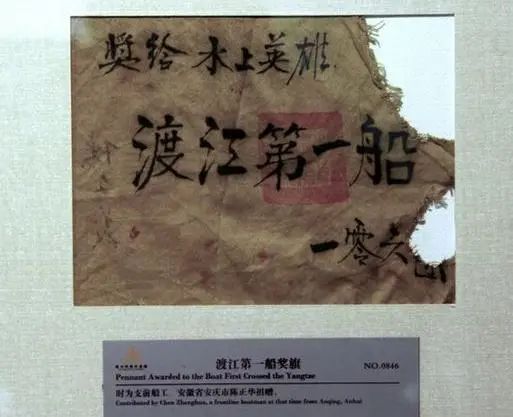 奬给 水上英雄
渡江第一船
一零六
渡江第一船奖旗
NO.0846
Pennant Awarded to the Boat First Crossed the Yangtze
时为支前船工、安徽省安庆市陈正华捐赠。
Contributed by Chen Zhenghua, a frontline boatman at that time from Anqing, Anhui